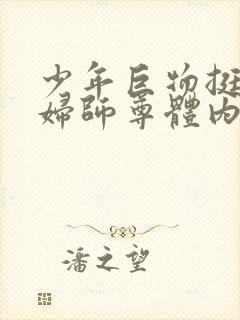 少年巨物挺
婦師尊體內
潘之望